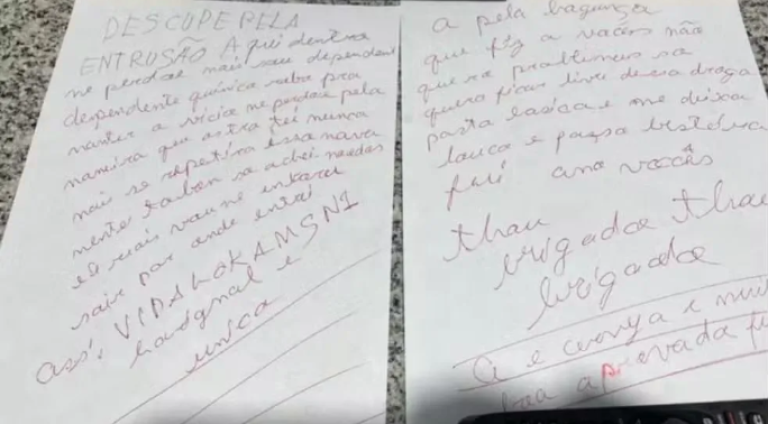 DESCOPE PELA
ENTRUSÃO A qui dentra
me perdoe mais sou dependent
despendente quimica roba pra
manter a vicia me perdoe pela
maneira que astra fui nunca
mais se repetira essa nava
mente roben sa achei moedas
so mais vou me entarci
sair por onde entri
ass: VIDA LOKA MSN 1
horignal e
unica
a pela bagunça
que fiz a vaces não
quera problemas sa
quero ficar livre dessa droga
pasta basica e me deixou
lauca e passa
fui ama vacês
thau
brigadoe thau
brigadoe
a e cerveja e
boa aprovada